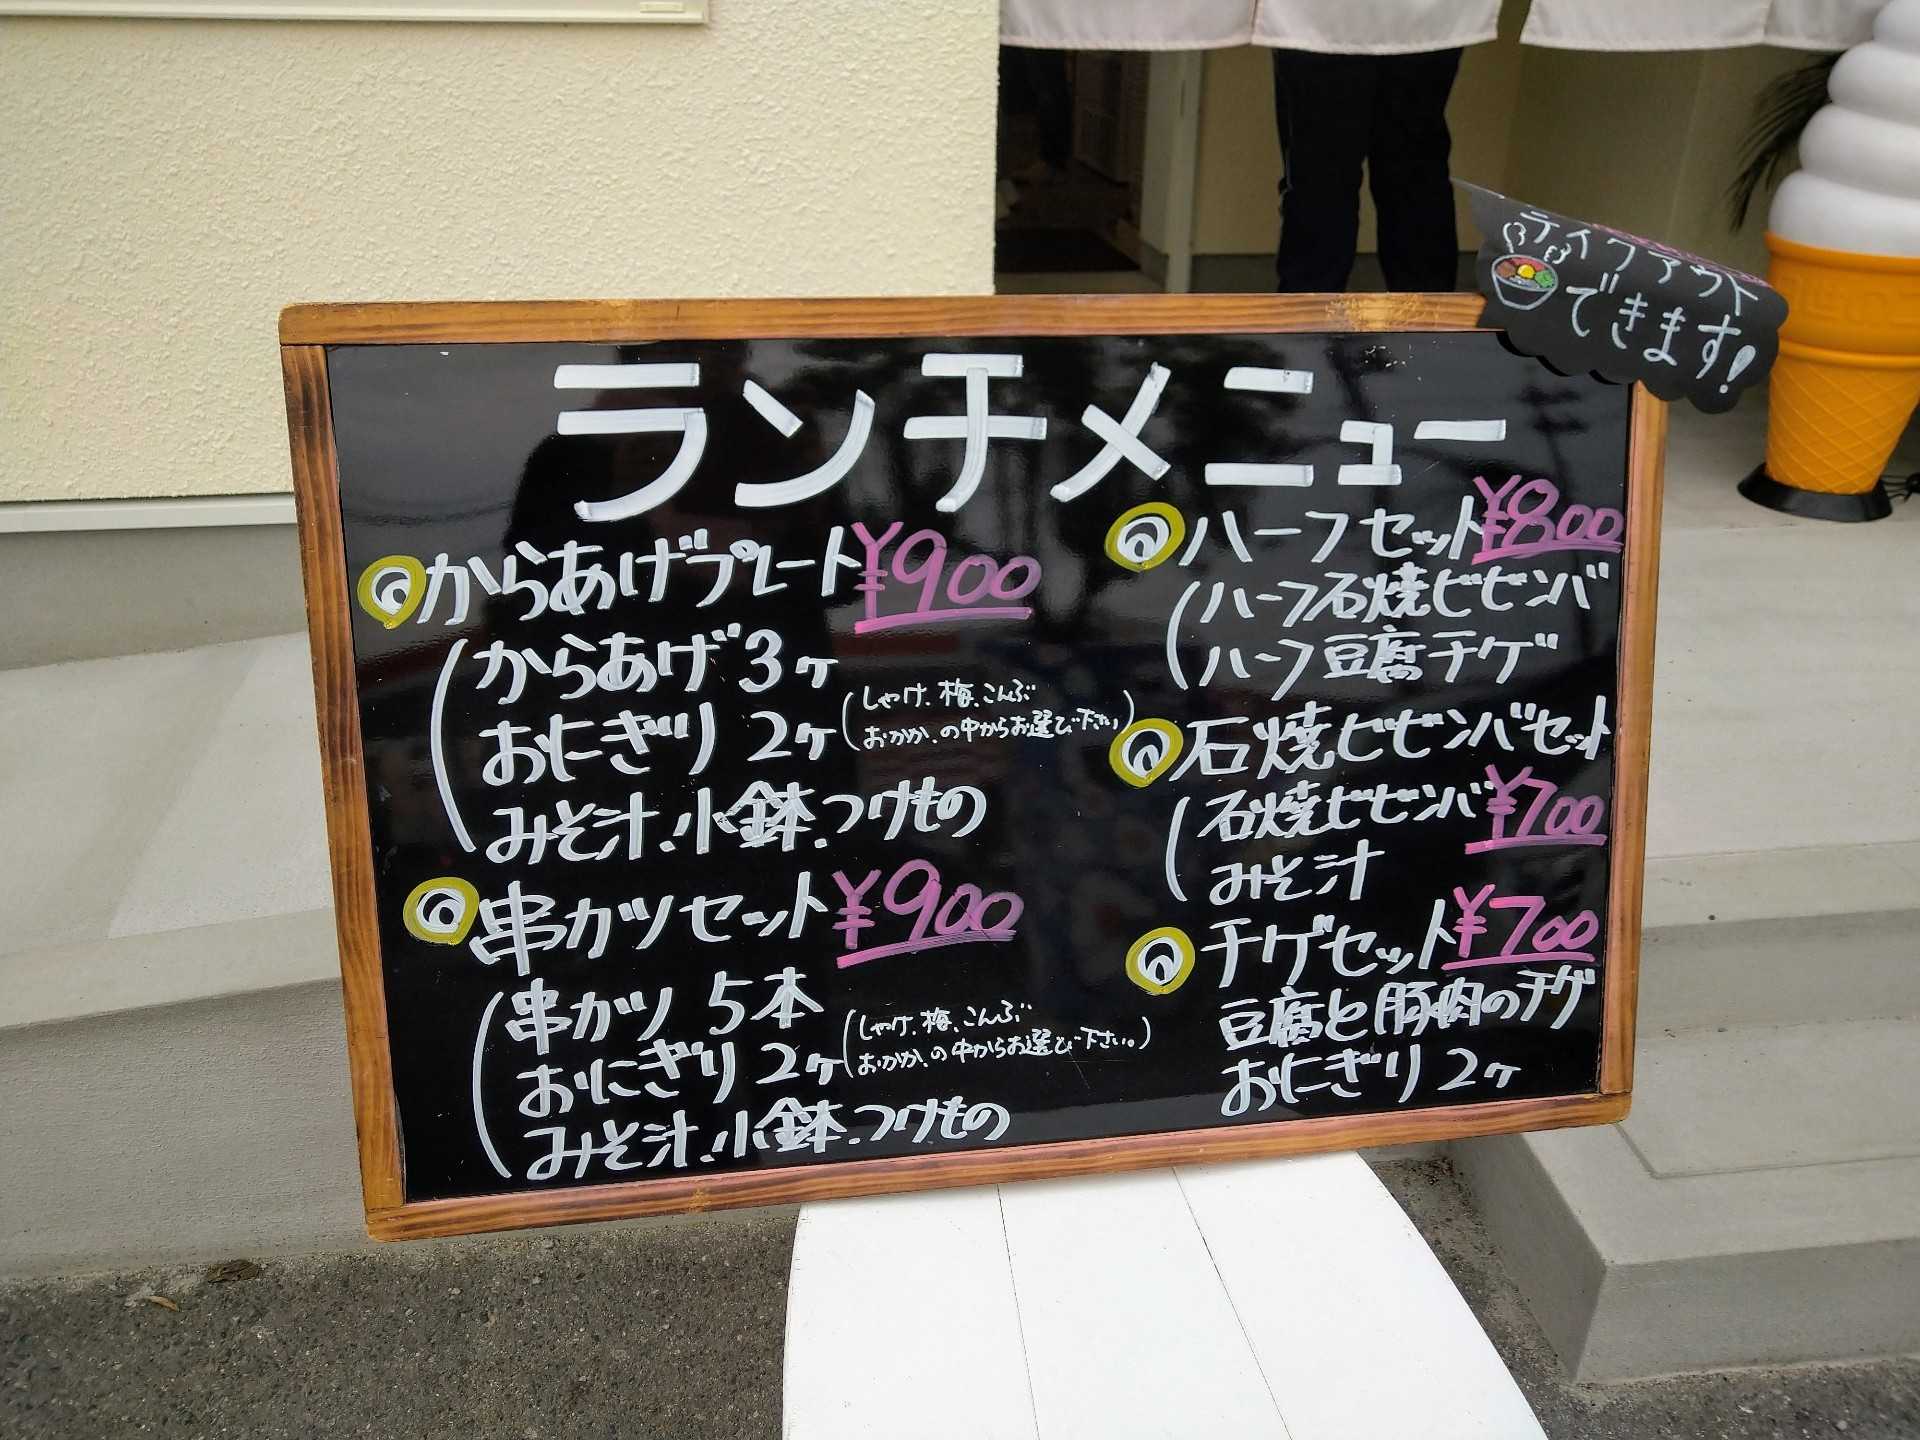 テイクアウト
できます!
ランチメニュー
からあげプレート ¥900
(からあげ 3ヶ
おにぎり 2ヶ (しゃけ、梅、こんぶ
おかか、の中からお選び下さい)
みそ汁、小鉢、つけもの
串カツセット ¥900
(串カツ 5本
おにぎり 2ヶ (しゃけ、梅、こんぶ
おかか、の中からお選び下さい。)
みそ汁、小鉢、つけもの
ハーフセット ¥800
(ハーフ石焼ビビンバ
ハーフ豆腐チゲ
石焼ビビンバセット
(石焼ビビンバ ¥700
みそ汁
チゲセット ¥700
豆腐と豚肉のチゲ
おにぎり 2ヶ